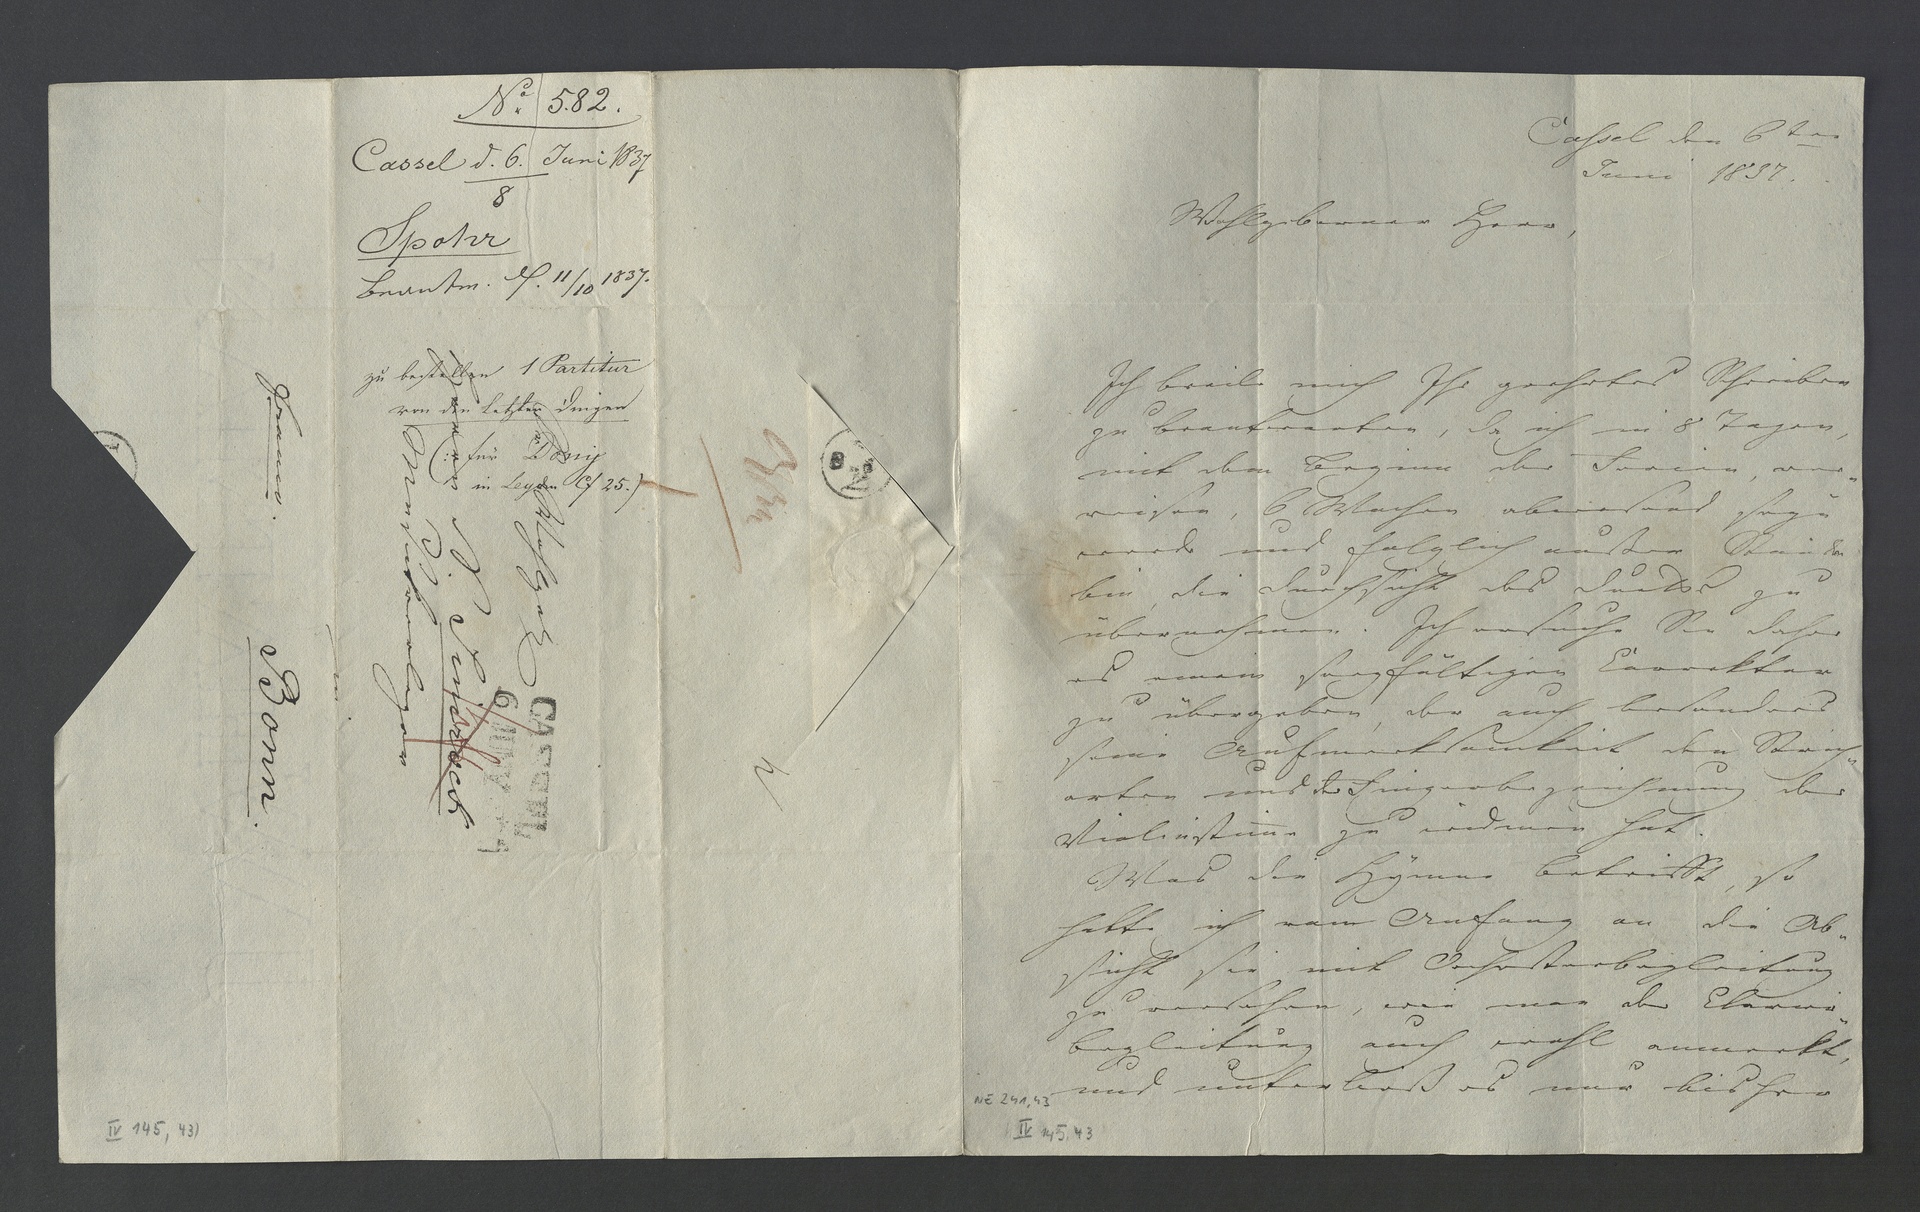 No. 582.
Cassel d. 6. Juni 1837
8
Spohr
Beantw. d. 11/10 1837.
zu bestellen 1 Partitur
von den letzten Dingen
(: für
in Leyden Cf 25.)
Herrn N. Simrock
Wohlgeb
Musikverleger
in
Bonn.
franco.
CASSEL
6 JUN
N. 8
IV 145, 43)
Cassel den 6ten
Juni 1837.
Wohlgeborner Herr,
Ich beeile mich Ihr geehrtes Schreiben
zu beantworten, da ich in 8 Tagen,
mit dem Beginn der Ferien, ver-
reisen, 6 Wochen abwesend seyn
werde und folglich außer Stande
bin, die Durchsicht des Drucks zu
übernehmen. Ich ersuche Sie daher
es einem sorgfältigen Correktor
zu übergeben, der auch besonders
seine Aufmerksamkeit den Strich-
arten und der Fingerbezeichnung der
Violinstimme zu widmen hat.
Was die Hymne betrifft, so
hatte ich vom Anfang an die Ab-
sicht sie mit Orchesterbegleitung
zu versehen, wie man der Clavier-
begleitung auch wohl anmerkt,
und unterließ es nur bisher
NE 241,43
IV 145,43